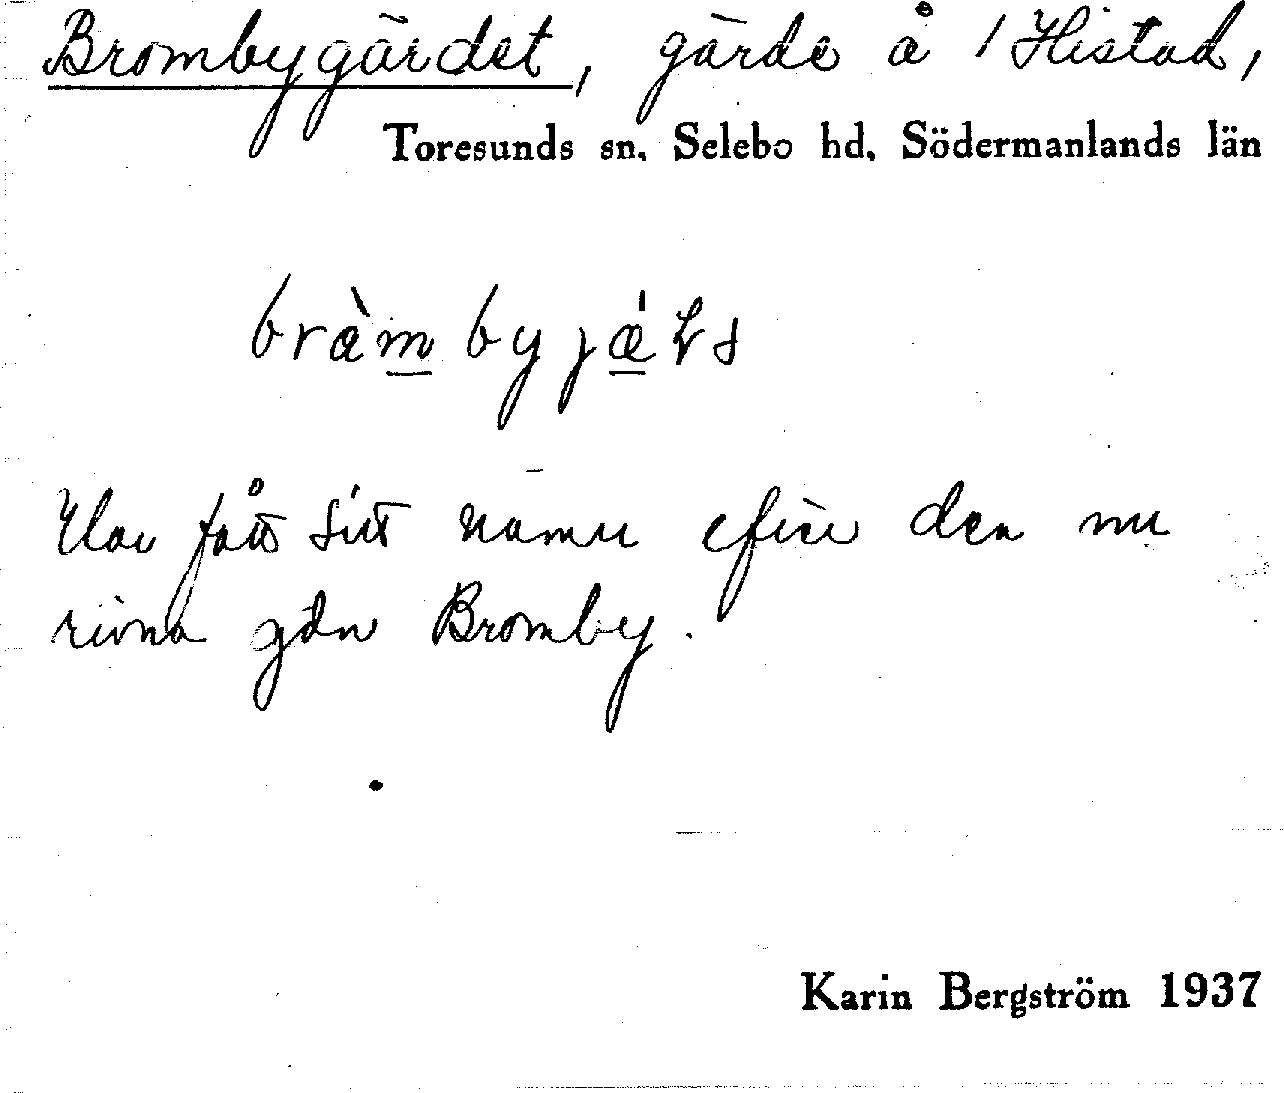 Brombygärdet, gärde å 1 Histad,
Toresunds sn. Selebo hd. Södermanlands län
Har fått sitt namn efter den nu
rivna gdn Bromby.
Karin Bergström 1937